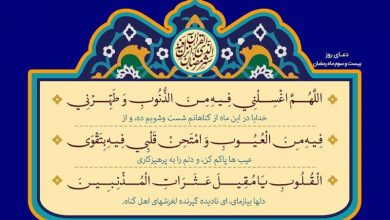 شهر رمضان الذی انزل فیه القرآن
دعـای روز
بیست و سوم ماه رمضان
اللَّهُمَّ اغْسِلْنِي فِيهِ مِنَ الذُّنُوبِ وَ طَهِّرْنِي
خدایا در این ماه از گناهانم شست وشویم ده، و از
فِيهِ مِنَ الْعُيُوبِ وَ امْتَحِنْ قَلْبِي فِيهِ بِتَقْوَى
عیب ها پاکم کن، و دلم را به پرهیزکاری
الْقُلُوبِ يَا مُقِيلَ عَثَرَاتِ الْمُذْنِبِينَ
دلها بیازمای، ای نادیده گیرنده لغزشهای اهل گناه.